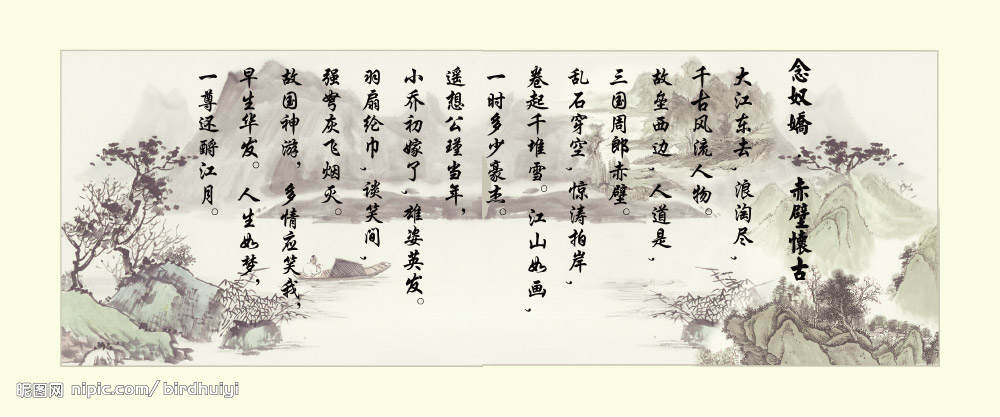 念奴嬌 赤壁懷古
大江东去,浪淘尽,
千古风流人物。
故垒西边,人道是,
三国周郎赤壁。
乱石穿空,惊涛拍岸,
卷起千堆雪。江山如画,
一时多少豪杰。
遥想公瑾当年,
小乔初嫁了,雄姿英发。
羽扇纶巾,谈笑间,
强弩灰飞烟灭。
故国神游,多情应笑我,
早生华发。人生如梦,
一尊还酹江月。
昵图网 nipic.com/birdhuiyi